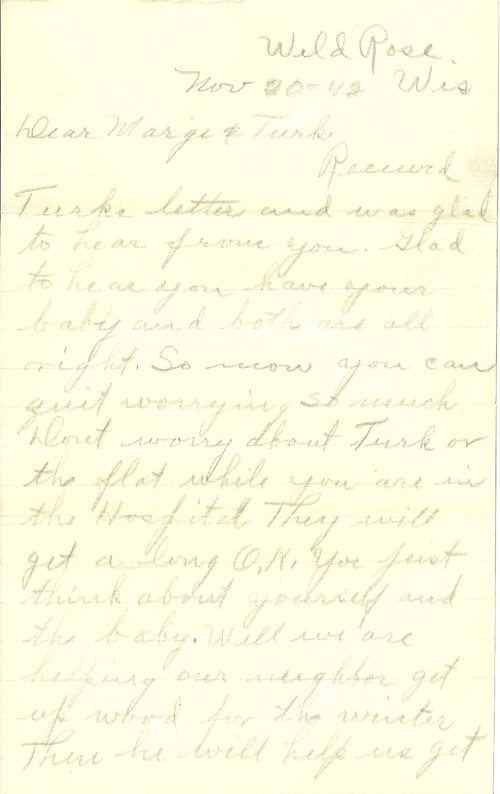 Wild Rose.
Nov 20-42 Wis
Dear Marge & Turk
Received
Turks letter and was glad
to hear from you. Glad
to hear you have your
baby and both are all
right. So now you can
quit worrying so much
Dont worry about Turk or
the flat while you are in
the Hospital They will
get a long O.K. You just
think about yourself and
the baby. Well we are
helping our neighbor get
up wood for the winter
Then he will help us get